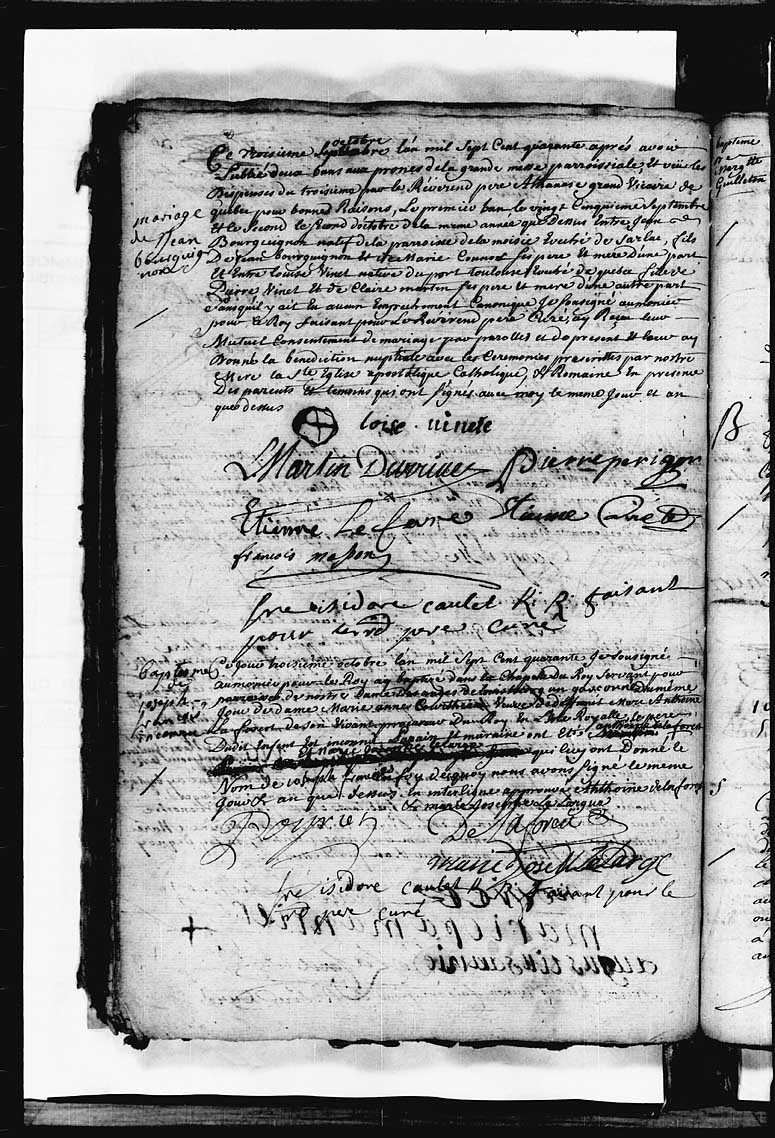 mariage
de Jean
bourguig
non
octobre
Ce troisieme Septembre l'an mil Sept Cent quarante aprés avoir
Publié deux bans aux prones de la grande messe parroissiale et vüe les
Dispenses du troisieme par le Réverend pere Athanase grand Vicaire de
Quebec pour bonnes Raisons, Le premier ban le vingt Cinquieme Septembre
et le Second le Second d'octobre de la meme année que Dessus Entre Jean
Bourguignon natif de la parroisse de la noisée Eveché de Sarlat, fils
De Jean bourguignon et de Marie Connot ses pere et mere d'une part
et Entre Louise Vinet native du port toulouse Eveché de quebec fille de
Pierre Vinet et de Claire martin ses pere et mere d'une autre part
Sans quil y ait eu aucun Empechement Canonique Je Soussigné aumonier
pour le Roy faisant pour Le Reverend pere Curé, ay Reçu leur
Mutuel Consentement de mariage par parolles de present et leur ay
Donné la bénediction nuptiale avec les Ceremonies prescrittes par notre
Mere la Ste Eglise apostolique Catholique, & Romaine En presence
Des parents et temoins qui ont signés avec moy le meme Jour et an
que dessus
loise vinete
Martin Pierre perigor
Etienne Le
francois masson
fre isidore caulet R. R. faisant
pour le rd pere Curé
baptesme
de
joseph
françois
inconnue
Ce Jour troisiéme octobre l'an mil Sept Cent quarante Je Sousigné
aumonier pour le Roy ay baptisé dans la Chapelle du Roy Servant pour
parroisse de nostre Dame Des anges de louisbourg un garçon né du méme
Jour de dame Marie anne Veuve De défunt Marc Anthoine
La forest de son Vivant procureur Du Roy En L'isle Royalle le pere
Dudit Enfant Est inconnu Le parain et maraine ont Eté anthoine de la forest
et marie Josephe le large qui luy ont Donné le
Nom de joseph francois En foy Dequoy nous avons signé le meme
Jour & an que dessus En interligne approuvé Anthoine de la forest
& marie Josephe Le Largue
De Laforest
marie Josephe Le Large
fre isidore caulet R. R. faisant pour le
rd pere curé
baptéme
de
Marg tte
Guilleton